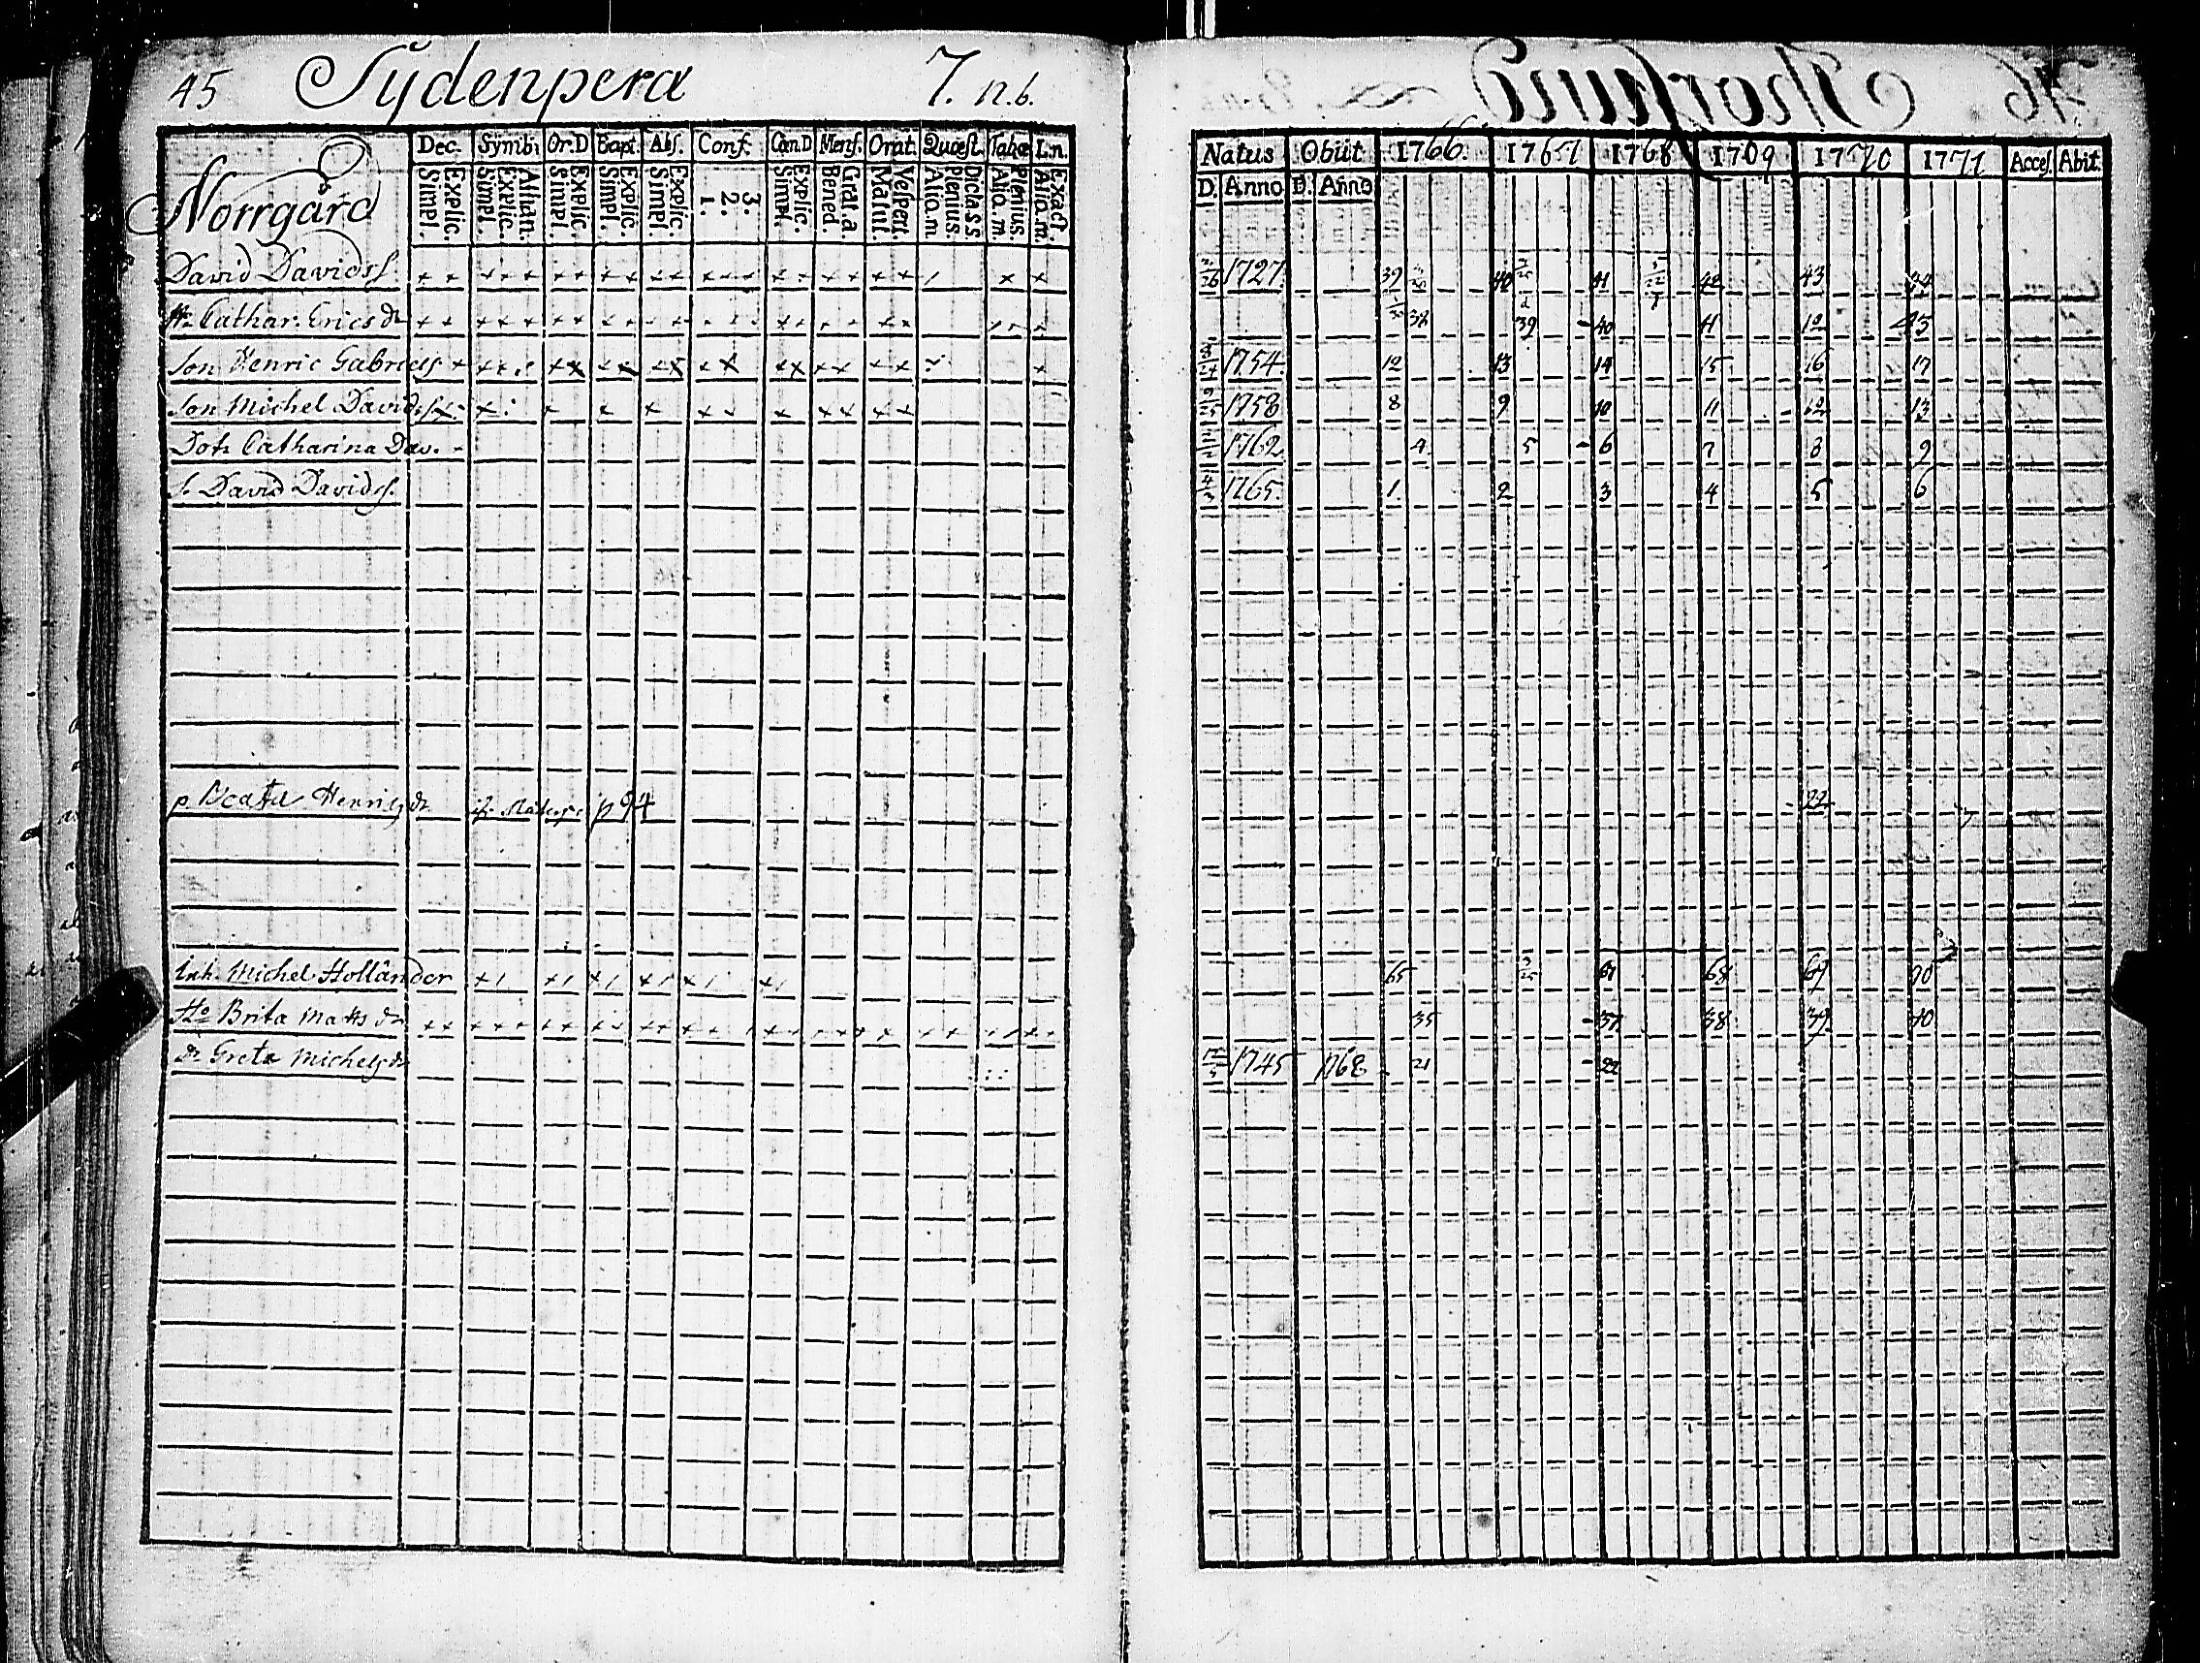 45 Sydenperä 7. n. 6.
Norrgård
Dec. Symb: Or.D Bapt. Abs. Conf. Cæn.D Mens. Orat. Quæst. Tabæ L.n.
Explic. Simpl. Athan. Explic. Simpl. Explic. Simpl. Explic. Simpl. Explic. Simpl. 3. 2. 1. Explic. Simpl. Grat. a. Bened. Vespert. Matut. Dic.lass. Plenius. Alio.m. Plenius. Alio.m. Exact. Alio.m.
Natus Obiit 1766. 1767 1768 1769 1770 1771 Acces. Abit.
D. Anno D. Anno
David Davidss. 1727. 39 40 41 42 43 44
H. Cathar. Erics dr 38 39 40 41 42 45
Son Henric Gabriels 1754. 12 13 14 15 16 17
Son Michel Davids 1758 8 9 10 11 12 13
Dotr Catharina Dav. 1762 4 5 6 7 8 9
S. David Davidss. 1765. 1. 2 3 4 5 6
p Beata Henrics dr p 94 22
Inh. Michel Holländer 65 67 68 69 70
Ho Brita Matts dr 35 37 38 39 40
dr Greta Michels dr 1745 1768 21 22